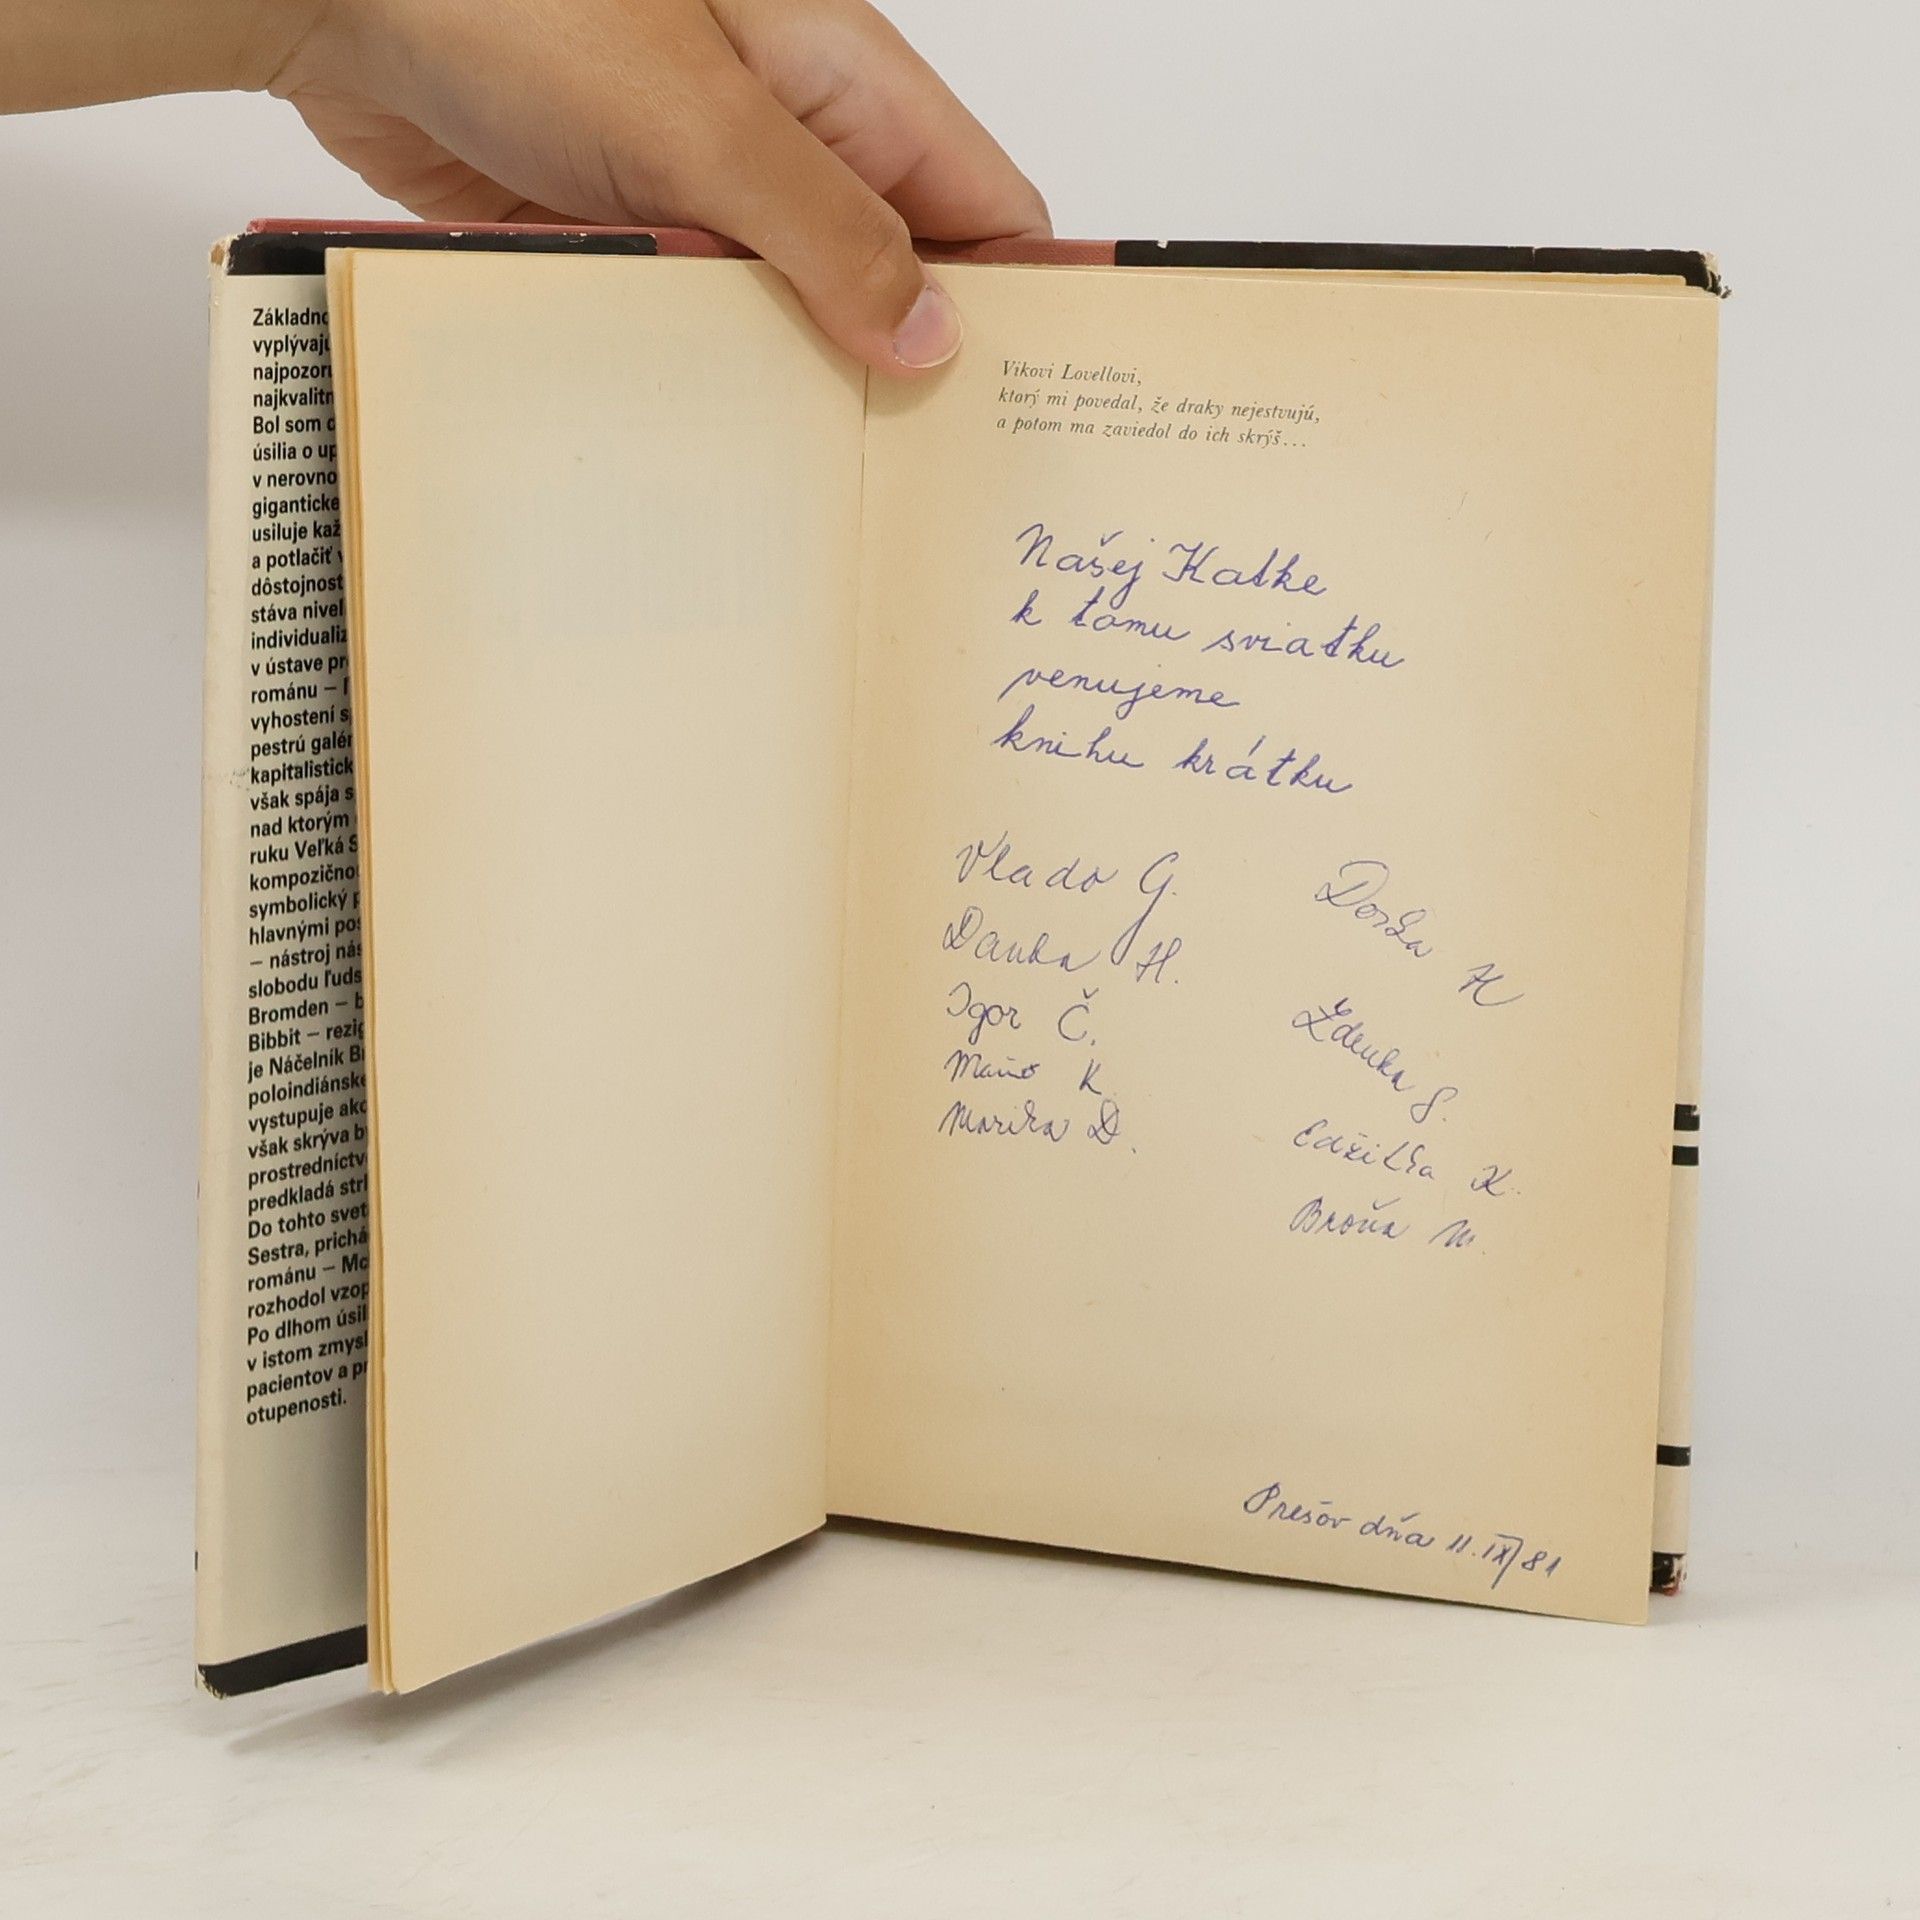 Základno
vyplývajú
najpozoru
najkvalitn
Bol som d
úsilia o up
v nerovno
gigantické
usiluje kaž
a potlačiť v
dôstojnost
stáva nivel
individualiz
v ústave pr
románu –
vyhostení s
pestrú galér
kapitalistick
však spája s
nad ktorým
ruku Veľká S
kompozično
symbolický p
hlavnými pos
– nástroj nás
slobodu ľuds
Bromden – b
Bibbit – rezig
je Náčelník Br
poloindiánske
vystupuje ako
však skrýva b
prostredníctv
predkladá str
Do tohto svet
Sestra, prichá
románu – Mc
rozhodol vzop
Po dlhom úsil
v istom zmysl
pacientov a pr
otupenosti.
Vikovi Lovellovi,
ktorý mi povedal, že draky nejestvujú,
a potom ma zaviedol do ich skrýš...
Našej Katke
k tomu sviatku
venujeme
knihu krátku
Vlado G.
Danka H.
Igor Č.
K.
Marika D.
Dorka H
Zdenka S.
Edžitka K.
Broňa M.
Prešov dňa 11. IX/81